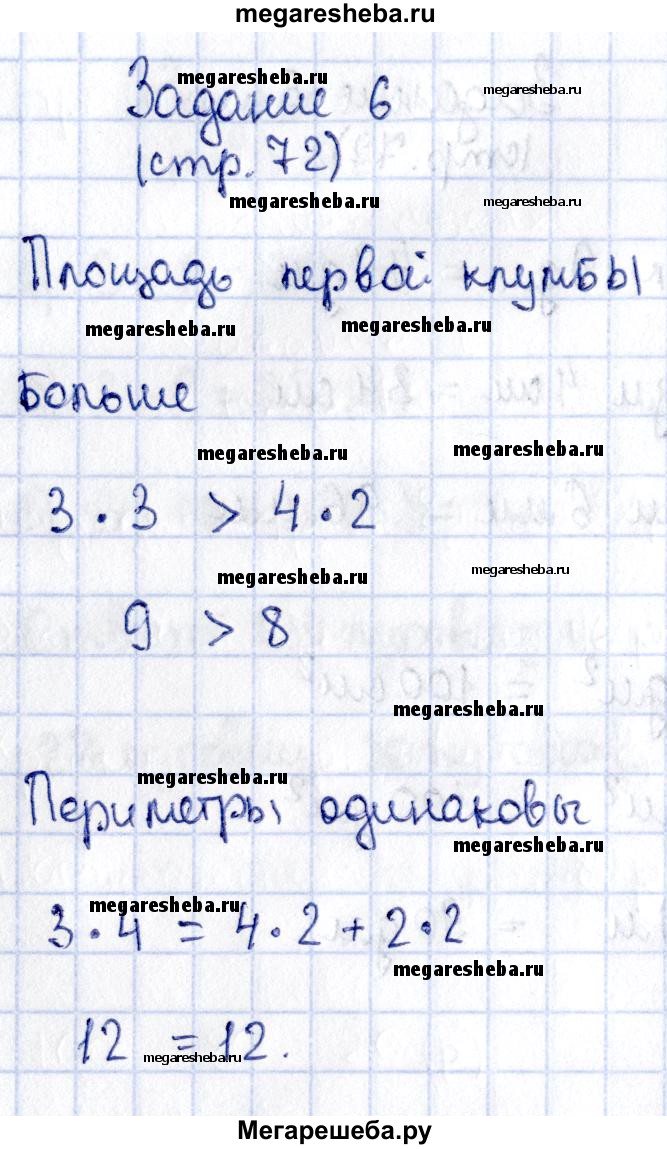 megaresheba.ru
megaresheba.ru
Задание 6
megaresheba.ru
(стр. 72)
megaresheba.ru
megaresheba.ru
Площадь первой клумбы
megaresheba.ru
megaresheba.ru
больше
megaresheba.ru
megaresheba.ru
3 · 3 > 4 · 2
megaresheba.ru
megaresheba.ru
9 > 8
megaresheba.ru
megaresheba.ru
Периметры одинаковы
megaresheba.ru
megaresheba.ru
3 · 4 = 4 · 2 + 2 · 2
megaresheba.ru
12 = 12.
megaresheba.ru
Мегарешеба.ру